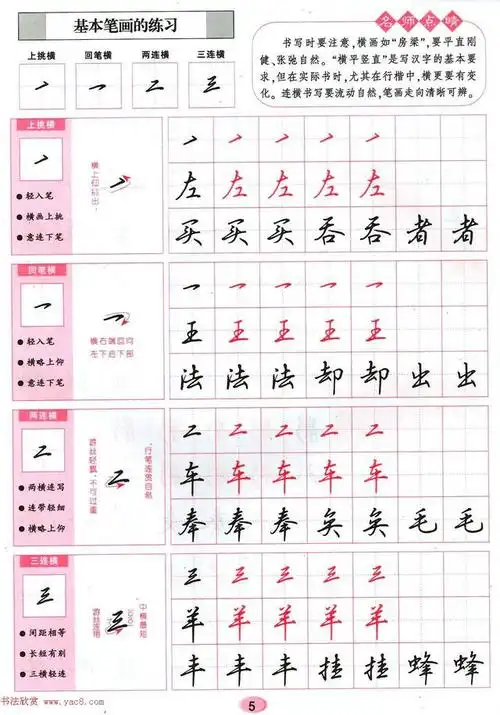 基本笔画的练习
上挑横 回笔横 两连横 三连横
一 一 二 三
名师点睛
书写时要注意,横画如“房梁”,要平直刚
健、张弛自然。“横平竖直”是写汉字的基本要
求,但在实际书时,尤其在行楷中,横更要有变
化。连横书写要流动自然,笔画走向清晰可辨。
上挑横
一
●轻入笔
●横画上挑
●意连下笔
一 一 一 一 一
左 左 左 左 左
买 买 买 吞 吞 者 者
回笔横
一
●轻入笔
●横略上仰
●意连下笔
一 一 一 一 一
王 王 王 王 王
法 法 法 却 却 出 出
两连横
二
●两横连写
●连带轻细
●横略上仰
游丝轻飘,不可过重
行笔连贯自然
二 二 二 二 二
车 车 车 车 车
奉 奉 奉 矣 矣 毛 毛
三连横
三
●间距相等
●长短有别
●三横轻连
中横最短
三 三 三 三 三
羊 羊 羊 羊 羊
丰 丰 丰 挂 挂 蜂 蜂
5
书法欣赏 www.yac8.com